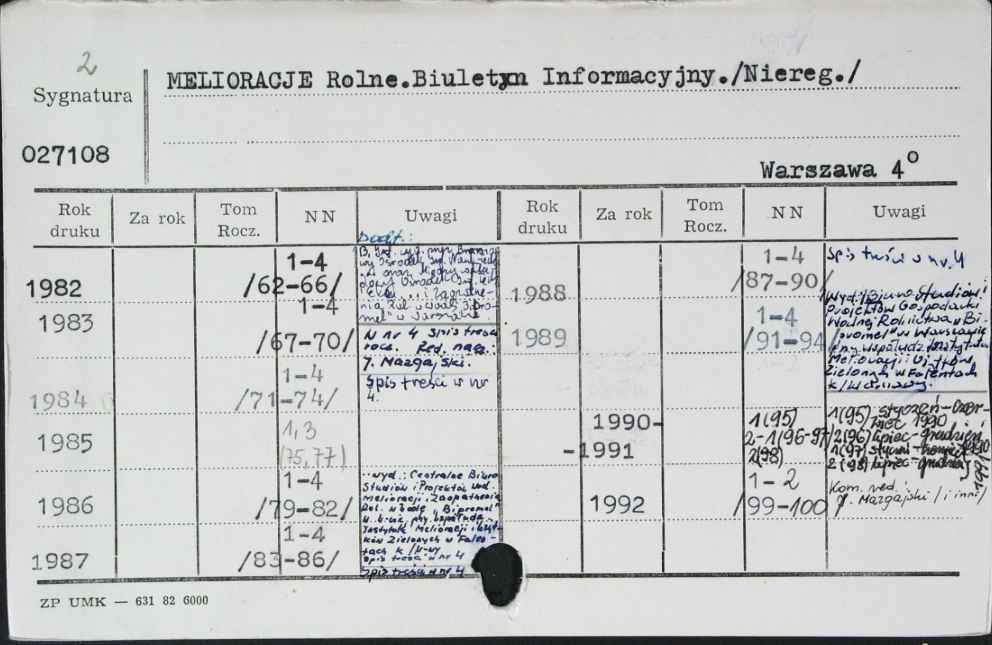 2
Sygnatura
MELIORACJE Rolne.Biuletyn Informacyjny./Niereg./
027108
Warszawa 4°
Rok druku
Za rok
Tom Rocz.
NN
Uwagi
Rok druku
Za rok
Tom Rocz.
NN
Uwagi
1982
1-4
/62-66/
1983
1-4
/67-70/
N nr 4 Spis treści
rocz. Red. nacz.
J. Mazgajski.
1984
1-4
/71-74/
Spis treści w nr
4.
1985
1,3
(75,77)
1986
1-4
/79-82/
wyd.: Centralne Biuro
Studiów i Projektów Wod.
Melioracji i Zaopatrzenia
Rol. w Wodę "Bipromel"
Instytut Melioracji i Użyt-
ków Zielonych w Falen-
tach k/W-wy
Spis treści w nr 4
1987
1-4
/83-86/
Spis treści w nr 4
1988
1-4
/87-90/
Spis treści w nr. 4
1989
1-4
/91-94/
Wyd.: Biuro Studiów i
Projektów Gospodarki
Wodnej Rolnictwa "Bi-
promel" w Warszawie
Melioracji i Użytków
Zielonych w Falentach
k/Warszawy.
1990-
-1991
1(95)
2-1(96-97)
2(98)
1(95) styczeń-czer-
wiec 1990
2(96) lipiec-grudzień 1990
1(97) styczeń-
2(98) lipiec-grudzień
1991
1992
1-2
/99-100/
Kom. red.
J. Mazgajski /i inni/
ZP UMK — 631 82 6000